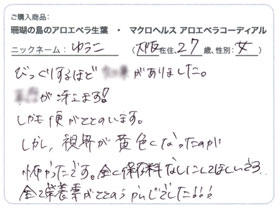 ご購入商品：
珊瑚の島のアロエベラ生葉 ・ マクロヘルス アロエベラコーディアル
ニックネーム：ゆうこ （大阪在住、27歳、性別：女）
びっくりするほど がありました。
が冴えます！
しかも便がととのいます。
しかし、視界が黄色くなったのが
小わかったです。全に保存料なしにしてほしいです。
全て栄養素がととのうかんじでした!!!